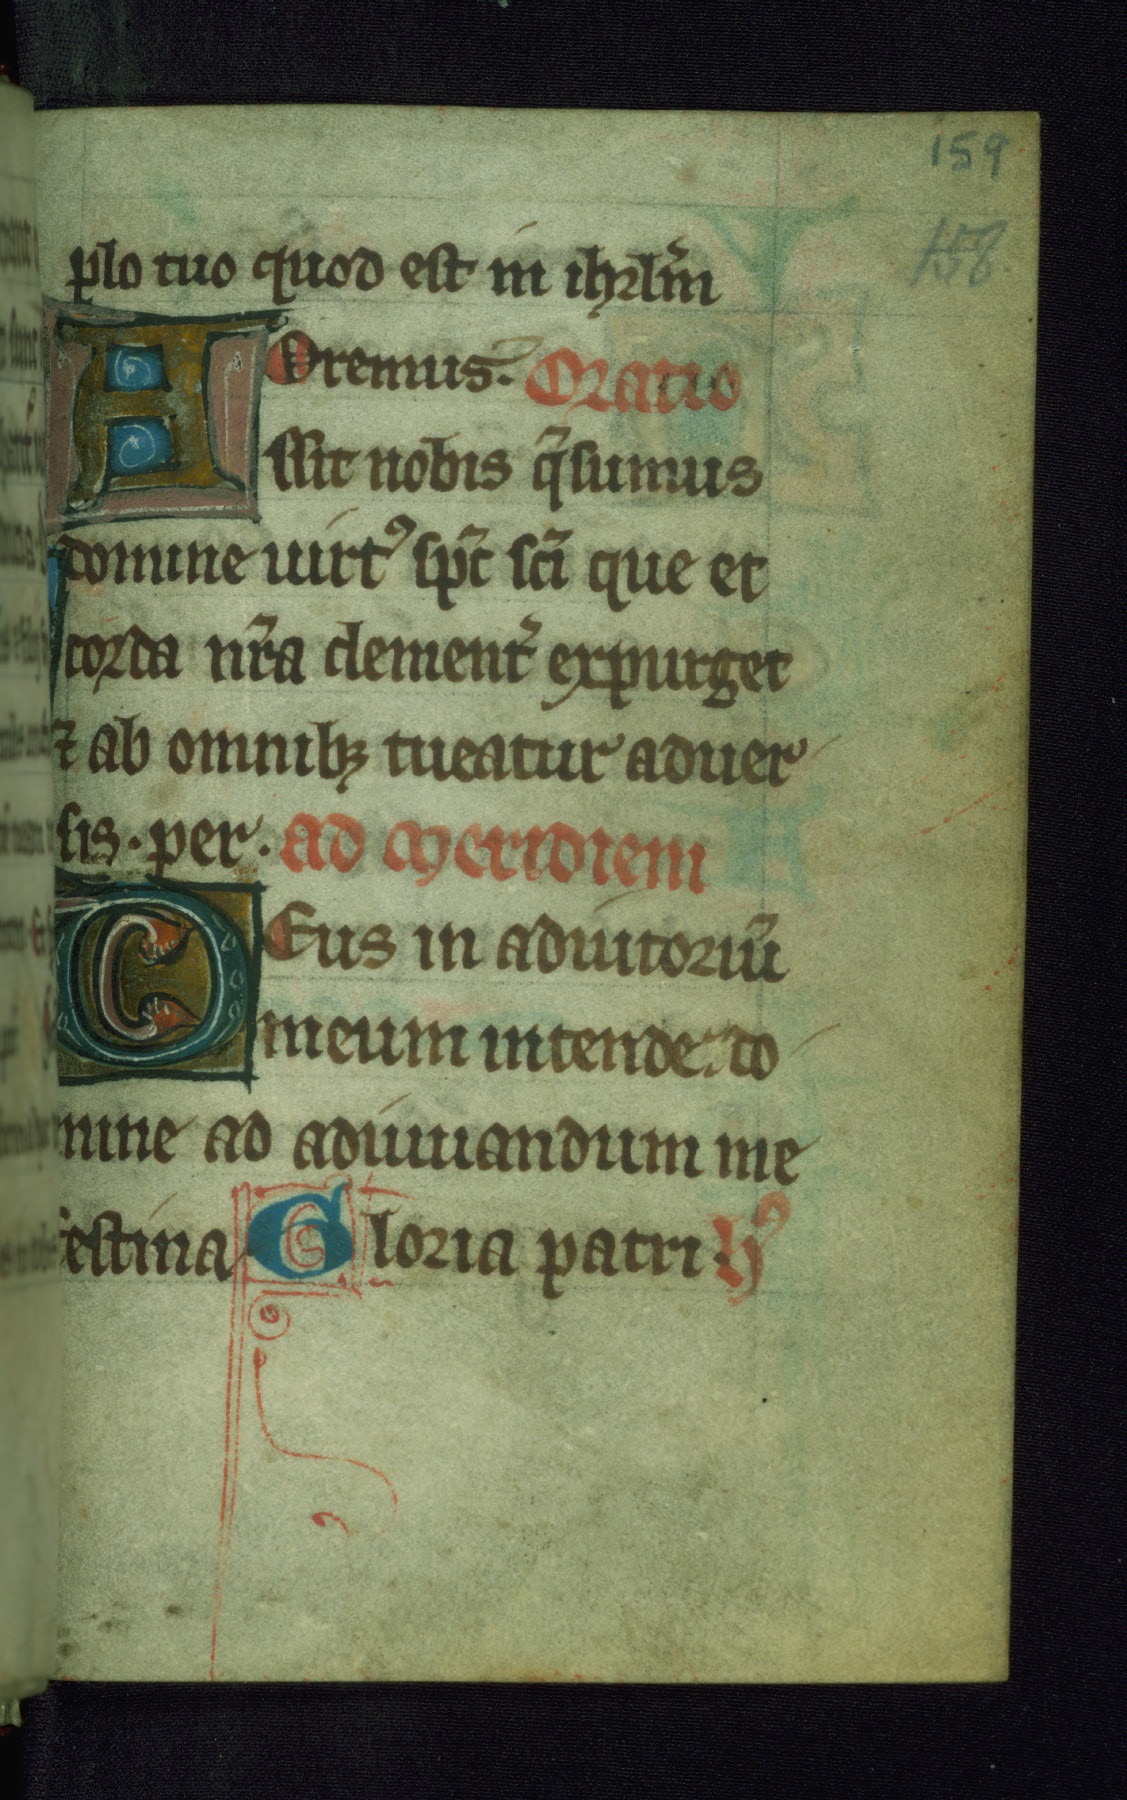 159
158
plo tuo quod est in ihrl̄m
Oremus. Oratio
Assit nobis q̄sumus
domine uirtꝰ sp̄c sc̄i que et
corda nr̄a clement᷑ expurget
⁊ ab omnibꝫ tueatur aduer
sis. per. ad meridiem
Deus in adiutoriū
meum intende. do
mine ad adiuuandum me
festina Gloria patri. hꝰ